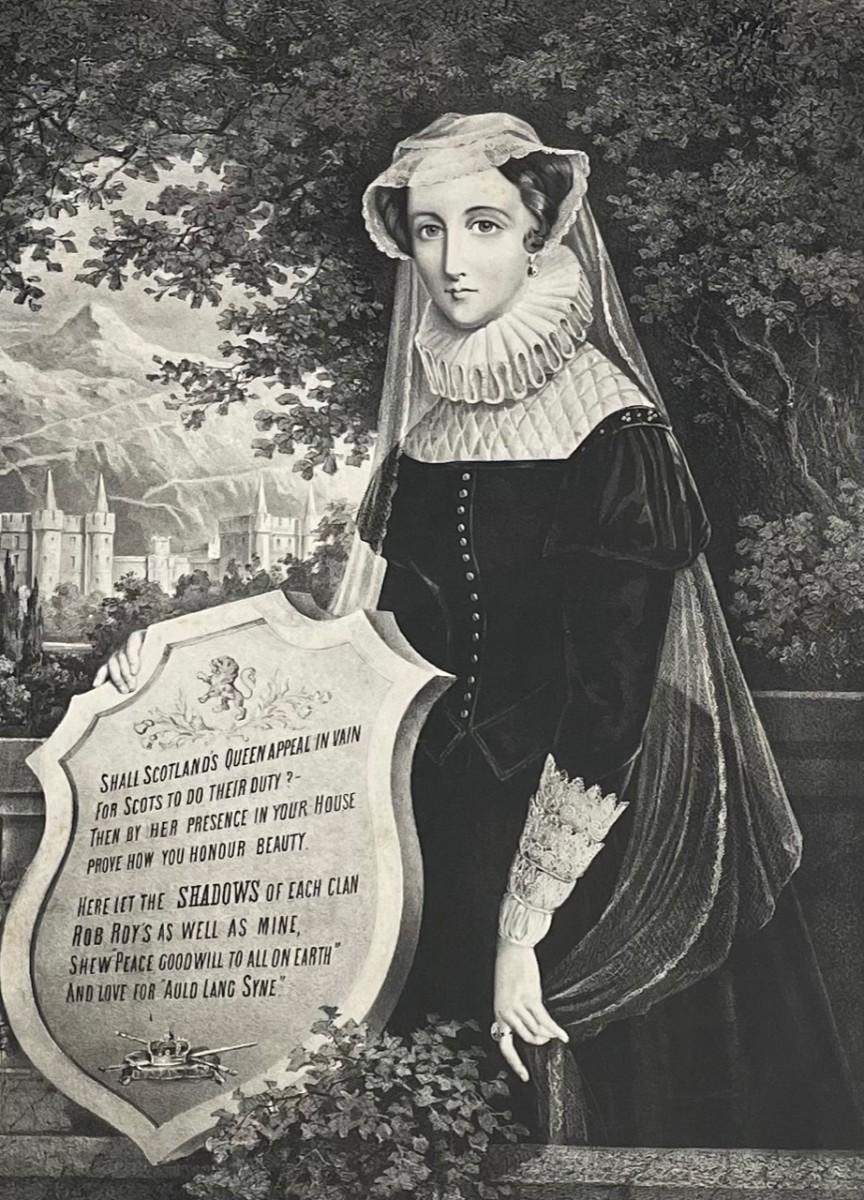 SHALL SCOTLAND'S QUEEN APPEAL IN VAIN
FOR SCOTS TO DO THEIR DUTY?-
THEN BY HER PRESENCE IN YOUR HOUSE
PROVE HOW YOU HONOUR BEAUTY.
HERE LET THE SHADOWS OF EACH CLAN
ROB ROY'S AS WELL AS MINE,
SHEW "PEACE GOODWILL TO ALL ON EARTH"
AND LOVE FOR "AULD LANG SYNE."